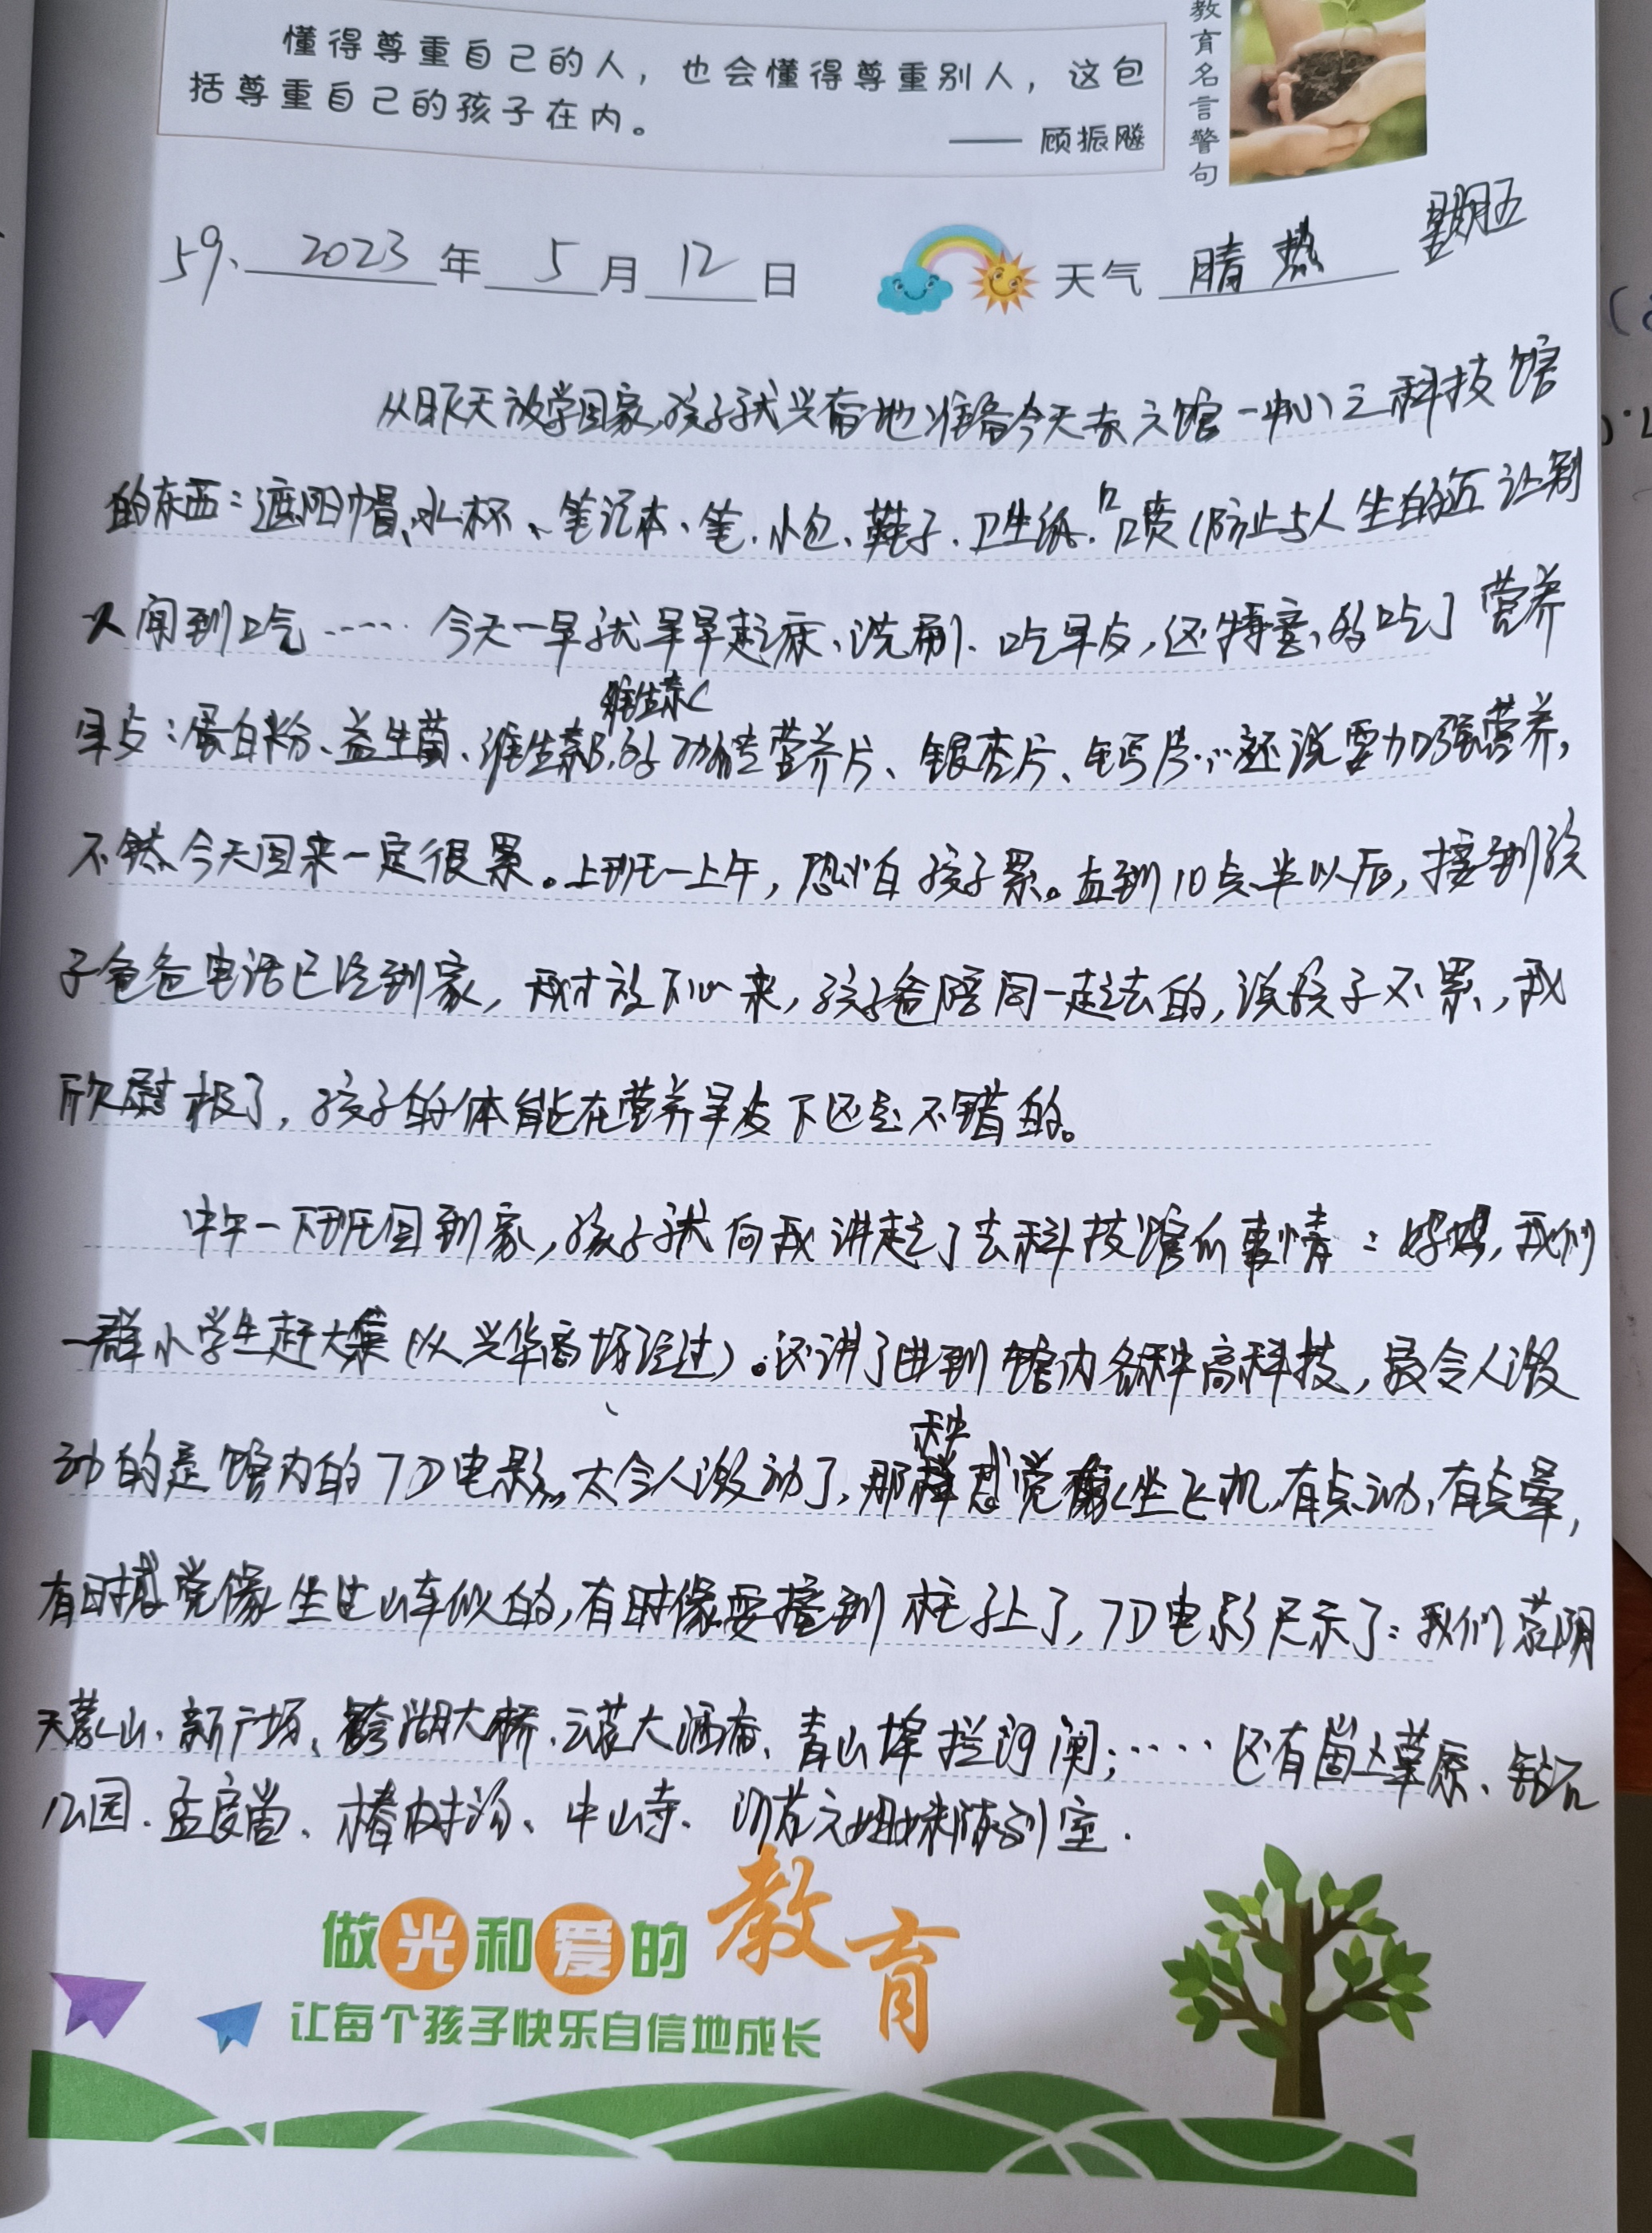 懂得尊重自己的人，也会懂得尊重别人，这包
括尊重自己的孩子在内。
—— 顾振飚
教育名言警句
59、2023年5月12日 天气 晴 热 星期五
从昨天放学回家，孩子就兴奋地准备今天去六馆一中心之科技馆
的东西：遮阳帽、水杯、笔记本、笔、小包、鞋子、卫生纸、口喷（防止与人生的近让别
人闻到口气…… 今天一早就早早起床、洗刷、吃早点，还特意的吃了营养
早点：蛋白粉、益生菌、维生素B、维生素C 营养片、银杏片、钙片……还说要加强营养，
不然今天回来一定很累。上班一上午，恐怕孩子累。直到10点半以后，接到孩
子爸爸电话已经到家，我才放下心来，孩子爸陪同一起去的，说孩子不累，我
欣慰极了，孩子的体能在营养早点下还是不错的。
中午一下班回到家，孩子就向我讲起了去科技馆的事情：妈妈，我们
一群小学生赶大集（从兴华商场经过）。还讲了 到馆内各种高科技，最令人激
动的是馆内的7D电影。太令人激动了，那种感觉像坐飞机，有点动，有点晕，
有时感觉像坐过山车似的，有时像要撞到柱子上了，7D电影展示了：我们蒙阴
天蒙山、新广场、跨湖大桥、云蒙大瀑布、青山 拦河闸；…… 还有崮上草原、钻石
公园、孟良崮、椿树沟、中山寺、沂蒙六姐妹陈列室.
做光和爱的教育
让每个孩子快乐自信地成长